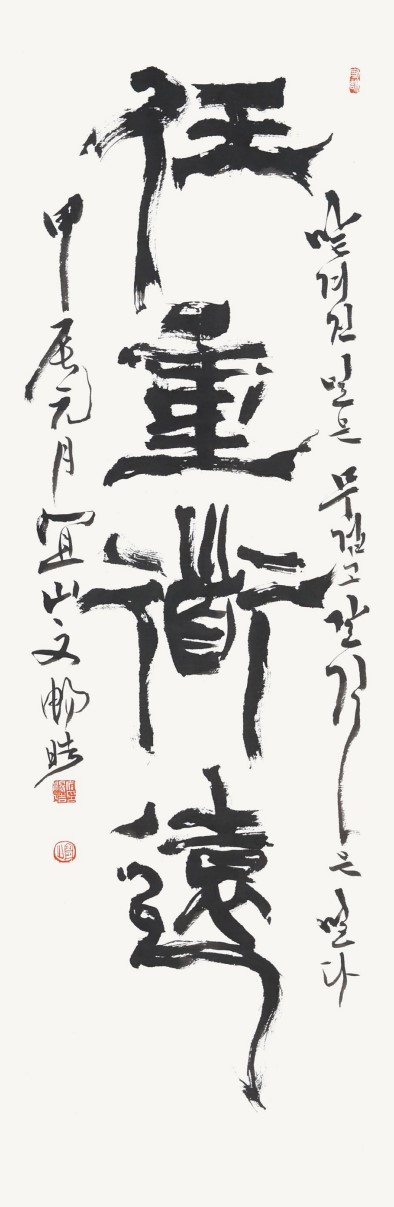 맡겨진 일은 무겁고 갈 길은 멀다
任重衜遠
甲辰元月 冝山 文暢晧